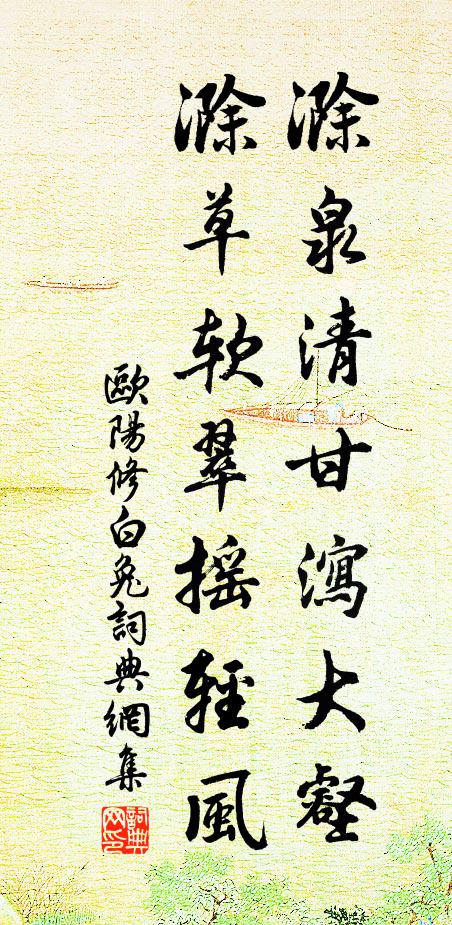 滁泉清甘瀉大壑
滁草软翠摇輕風
歐陽修白兔詞典網集
詞典网印